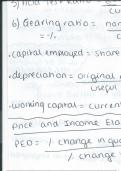 5) Acid Test Ratio =
cu
6) Gearing ratio = non
= -/. c
• capital employed = share
• depreciation = original
useful
• working capital = current
Price and Income Ela
PED = % change in qua
% change